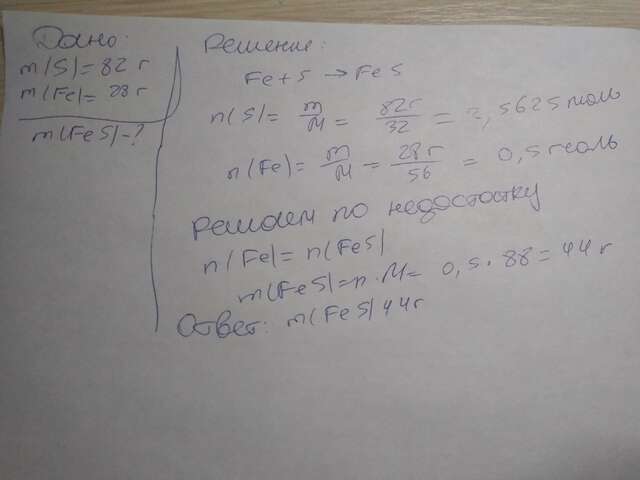 Дано:
m(S)= 82 г
m(Fe)= 28 г
m(FeS)-?
Решение:
Fe+S → FeS
n(S)= m/M = 82г/32 = 2,5625 моль
n(Fe)= m/M = 28г/56 = 0,5 моль
Решаем по недостатку
n(Fe)= n(FeS)
m(FeS)=n·M= 0,5·88=44 г
Ответ: m(FeS) 44г